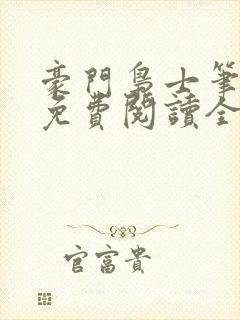 豪門梟士筆
免費閱讀全
官富貴